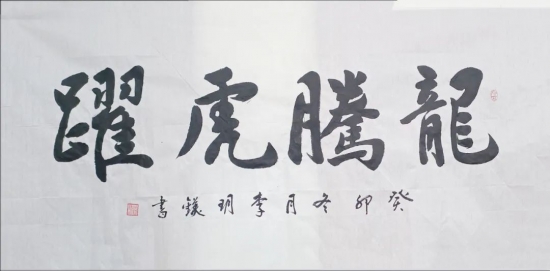 龍騰虎躍
癸卯冬月李玥書